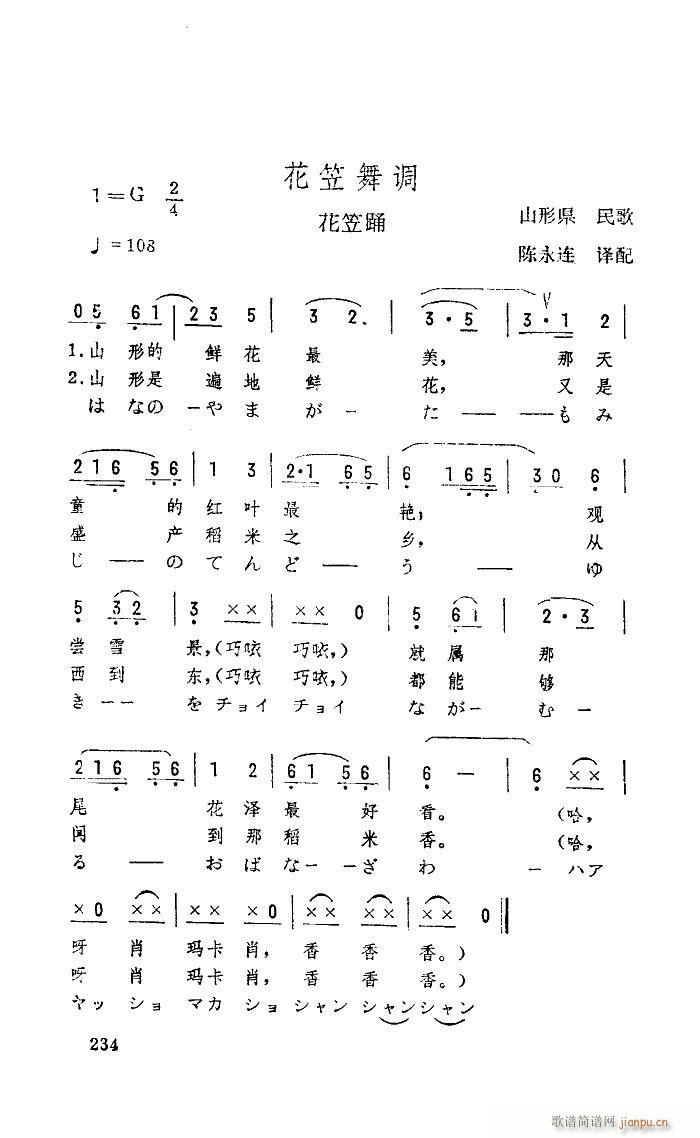 花笠舞调
1=G 2/4
花笠踊
山形県 民歌
♩=108
陈永连 译配
0 5 6 1 | 2 3 5 | 3 2. | 3·5 | 3·1 2 |
1.山 形的 鲜 花 最 美, 那 天
2.山 形是 遍 地 鲜 花, 又 是
は なの ーや ま が ー た ― ― も み
2 1 6 5 6 | 1 3 | 2·1 6 5 | 6 1 6 5 | 3 0 6 |
童 的 红 叶 最 艳; 观
盛 产 稻 米 之 乡, 从
じ ― ― の て ん ど ― ― う ― ― ゆ
5 3 2 | 3 ×× | ×× 0 | 5 6 i | 2·3 |
尝 雪 景,(巧咗 巧咗,) 就 属 那
西 到 东,(巧咗 巧咗,) 都 能 够
き ー ー を チョイ チョイ な が ー む ー
2 1 6 5 6 | 1 2 | 6 1 5 6 | 6 — | 6 ×× |
尾 花 泽 最 好 看。 (哈,
闻 到 那 稻 米 香。 (哈,
る ― ― お ば な ー ー ざ わ ー ハア
× 0 ×× | ×× × 0 | ×× ×× | ×× 0 ‖
呀 肖 玛卡 肖, 香 香 香。)
呀 肖 玛卡 肖, 香 香 香。)
ヤッ ショ マカ ショ シャン シャンシャン
234
歌谱简谱网 jianpu.cn